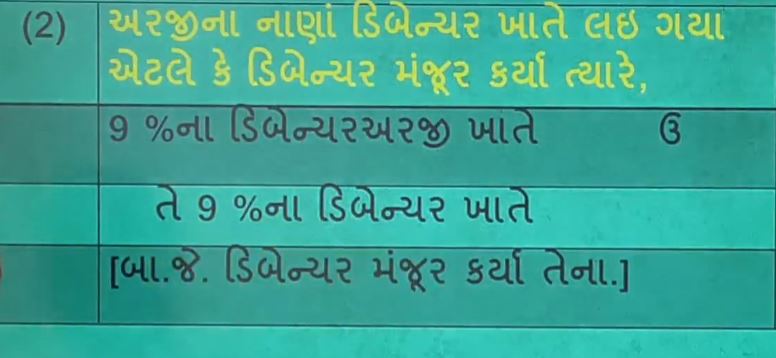 (2) અરજીના નાણાં ડિબેન્ચર ખાતે લઇ ગયા
એટલે કે ડિબેન્ચર મંજૂર કર્યા ત્યારે,
9 %ના ડિબેન્ચરઅરજી ખાતે ઉ
તે 9 %ના ડિબેન્ચર ખાતે
[બા.જે. ડિબેન્ચર મંજૂર કર્યા તેના.]